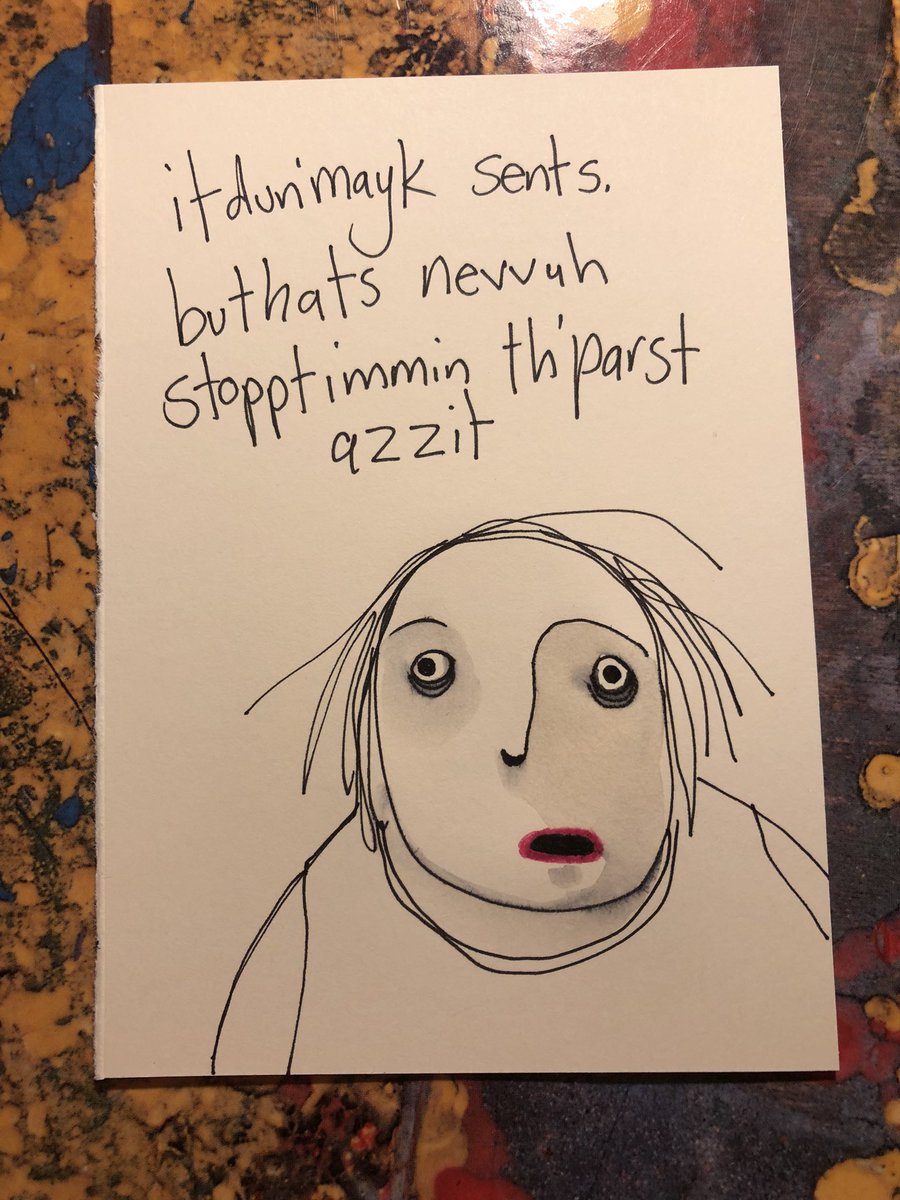 itdun'mayk sents.
buthats nevvuh
stopptimmin th'parst
azzit